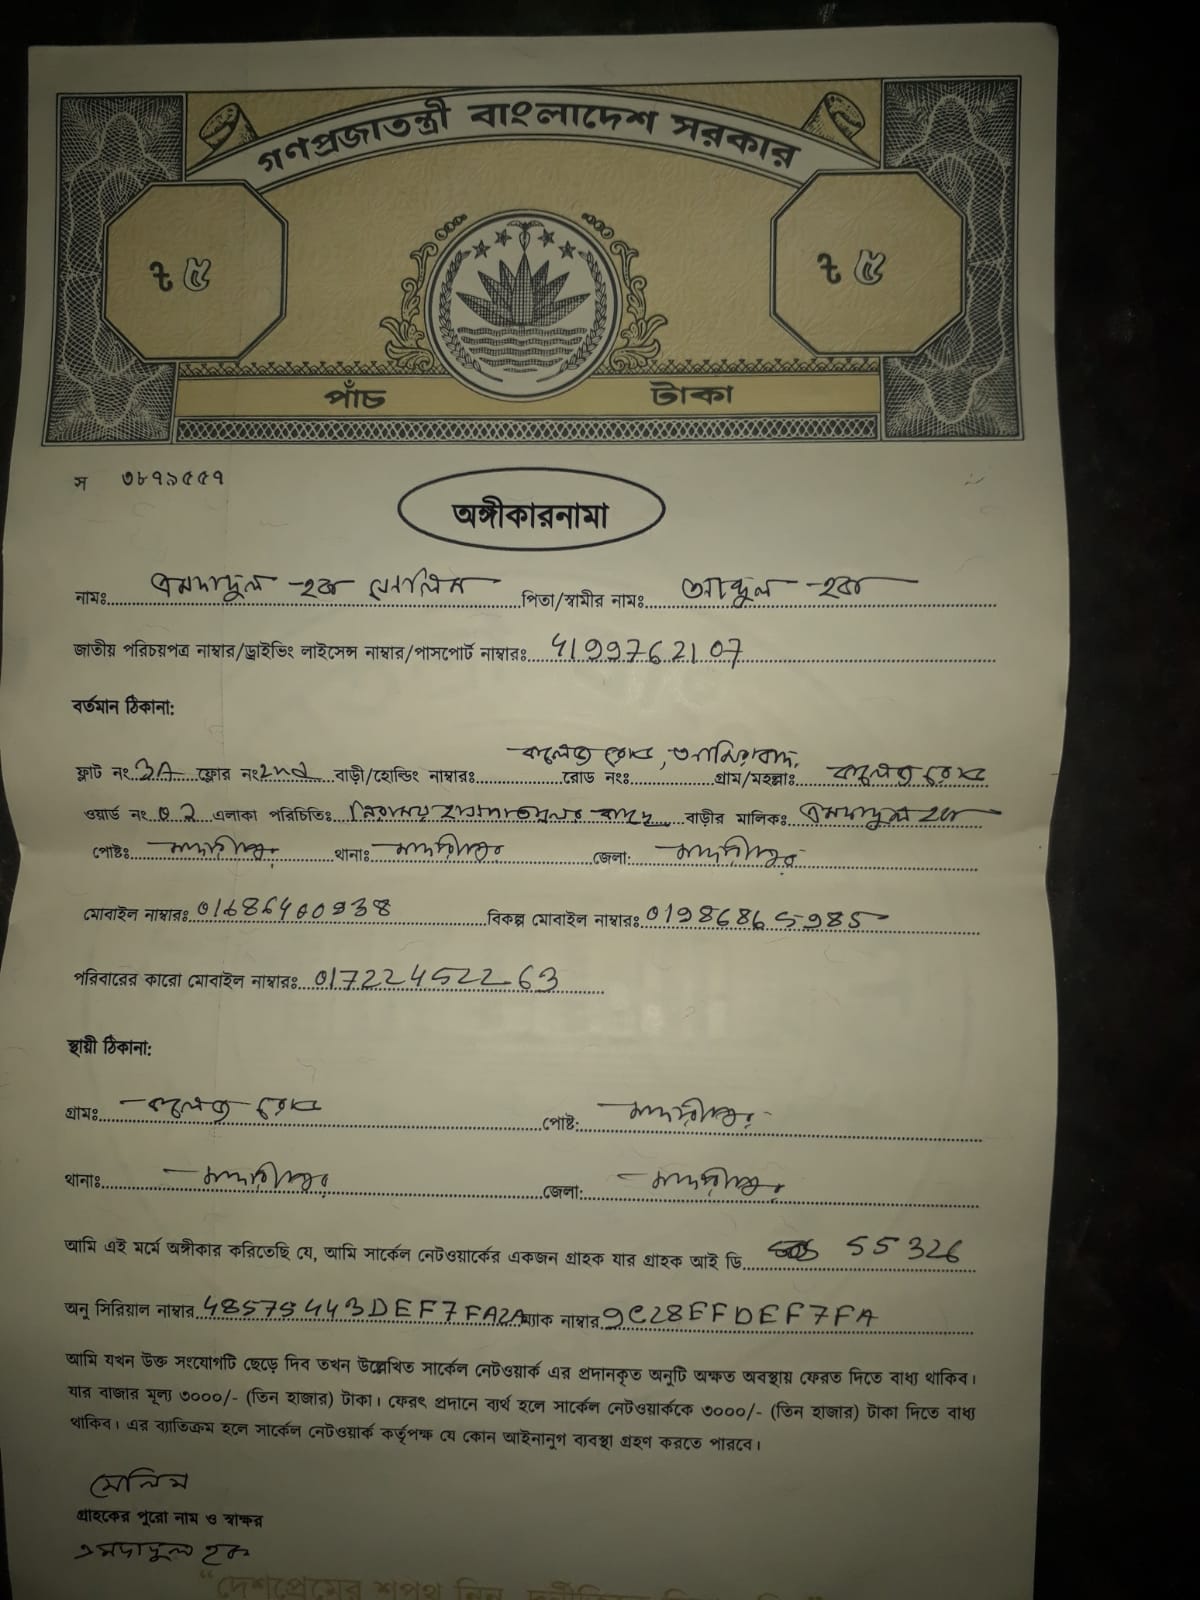 গণপ্রজাতন্ত্রী বাংলাদেশ সরকার
৳ ৫ ৳ ৫
পাঁচ টাকা
স ৩৮৭৯৫৫৭
অঙ্গীকারনামা
নামঃ এমদাদুল হক সেলিম পিতা/স্বামীর নামঃ আব্দুল হক
জাতীয় পরিচয়পত্র নাম্বার/ড্রাইভিং লাইসেন্স নাম্বার/পাসপোর্ট নাম্বারঃ 4199762107
বর্তমান ঠিকানা:
ফ্লাট নং 3A ফ্লোর নং 2nd বাড়ী/হোল্ডিং নাম্বারঃ কলেজ রোড, রোড নংঃ গ্রাম/মহল্লাঃ কলেজ রোড
ওয়ার্ড নং 02 এলাকা পরিচিতিঃ নিরাময় হাসপাতালের বাড়ীর মালিকঃ এমদাদুল হক
পোষ্টঃ মাদারীপুর থানাঃ মাদারীপুর জেলা: মাদারীপুর
মোবাইল নাম্বারঃ 01686400938 বিকল্প মোবাইল নাম্বারঃ 01986865985
পরিবারের কারো মোবাইল নাম্বারঃ 01722452263
স্থায়ী ঠিকানা:
গ্রামঃ কলেজ রোড পোষ্ট: মাদারীপুর
থানাঃ মাদারীপুর জেলা: মাদারীপুর
আমি এই মর্মে অঙ্গীকার করিতেছি যে, আমি সার্কেল নেটওয়ার্কের একজন গ্রাহক যার গ্রাহক আই ডি 55326
অনু সিরিয়াল নাম্বার 48575443DEF7FA2A ম্যাক নাম্বার 9C28EFDEF7FA
আমি যখন উক্ত সংযোগটি ছেড়ে দিব তখন উল্লেখিত সার্কেল নেটওয়ার্ক এর প্রদানকৃত অনুটি অক্ষত অবস্থায় ফেরত দিতে বাধ্য থাকিব।
যার বাজার মূল্য ৩০০০/- (তিন হাজার) টাকা। ফেরৎ প্রদানে ব্যর্থ হলে সার্কেল নেটওয়ার্ককে ৩০০০/- (তিন হাজার) টাকা দিতে বাধ্য
থাকিব। এর ব্যাতিক্রম হলে সার্কেল নেটওয়ার্ক কর্তৃপক্ষ যে কোন আইনানুগ ব্যবস্থা গ্রহণ করতে পারবে।
সেলিম
গ্রাহকের পুরো নাম ও স্বাক্ষর
এমদাদুল হক
"দেশপ্রেমের শপথ নিন,